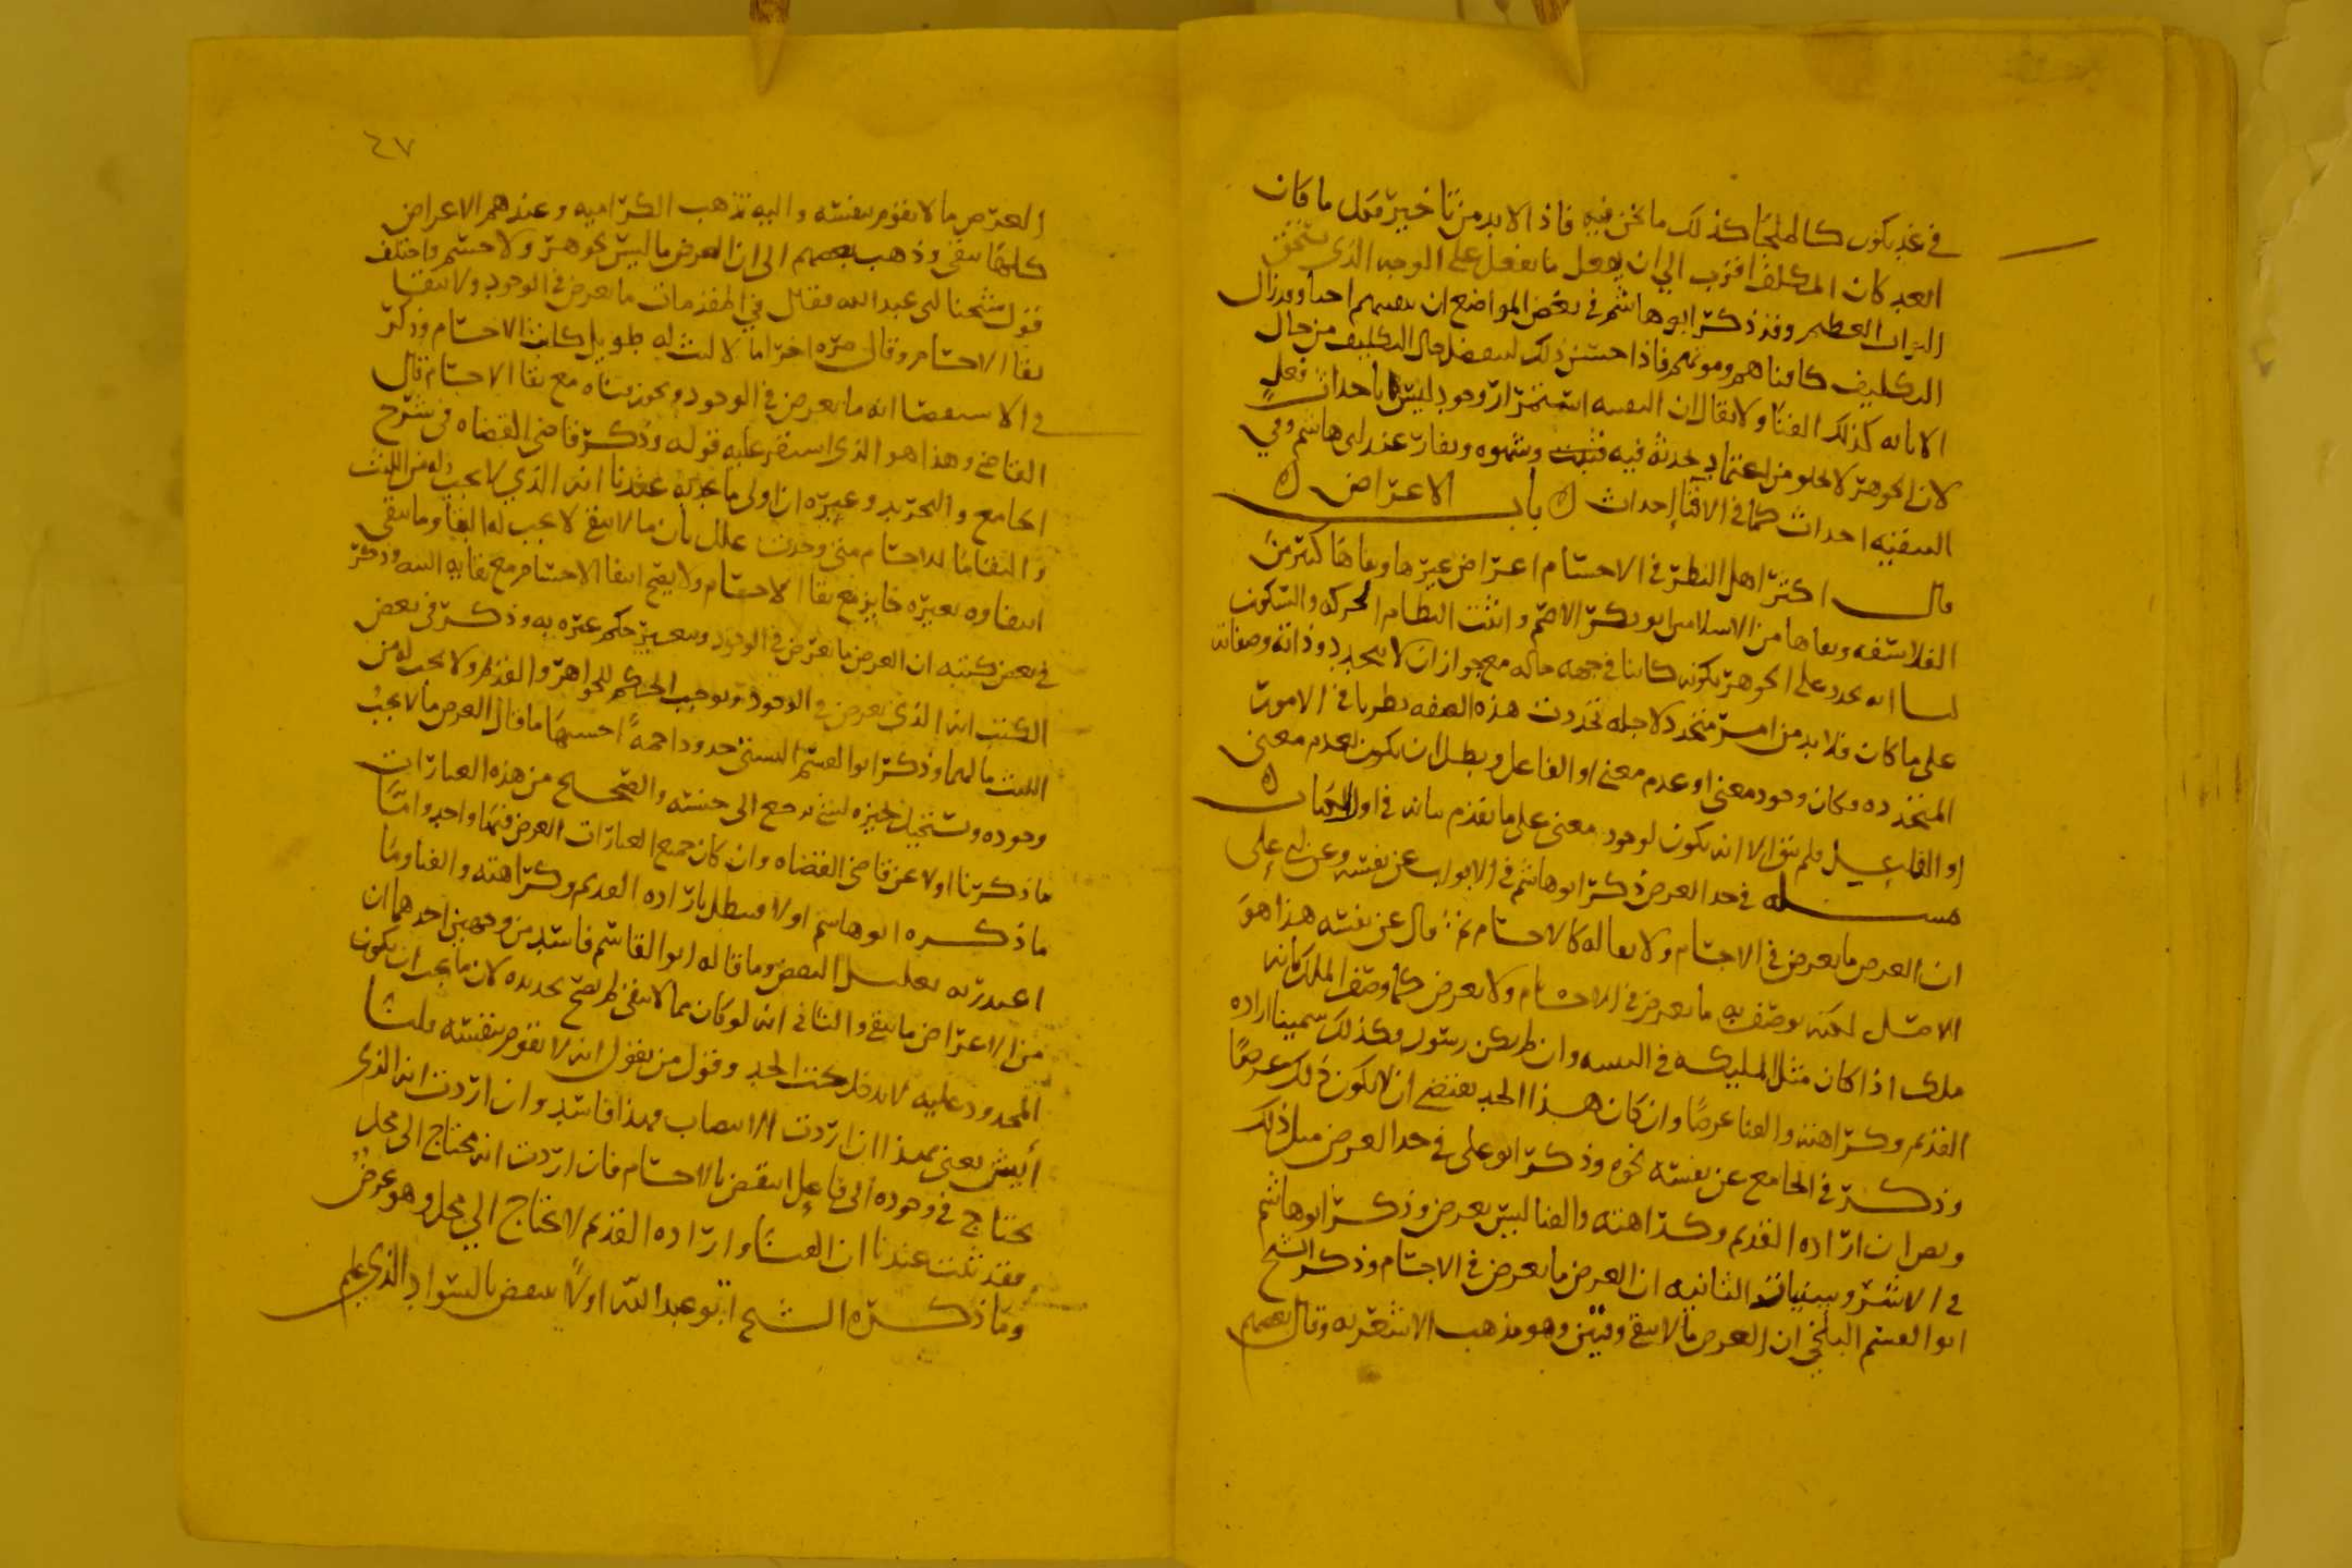 في غد يكون كالملجأ كذلك ما نحن فيه فاذا لا بد من تأخيره فعل ما كان
العبد كان المكلف اقرب الى ان يفعل ما يفعل على الوجه الذي يستحق
الثواب العظيم وقد ذكر ابو هاشم في بعض المواضع ان
التكليف كافناهم وموتهم فاذا حسن ذلك لينفصل حال التكليف من حال
الاثابه كذلك الفنا ولا يقال ان استمرار وجود ليس باحداث فعل
لان الجوهر لا يخلو من اعتماد يحدثه فيه وشهوه ونفار عند ابى هاشم وفي
التبقيه احداث كما في الافنا احداث ه باب الاعراض ه
قال اكثر اهل النظر في الاجسام اعراض غيرها ونفاها كثير من
الفلاسفه ونفاها من الاسلاميين ابو بكر الاصم واثبت النظام الحركه والسكون
لنا انه تجدد على الجوهر كونه كائنا في جهه حاله مع جواز ان لا يتجدد وذاته وصفاته
على ما كان فلا بد من امر متجدد لاجله تجددت هذه الصفه نظرنا في الامور
المتجدده فكان وجود معنى او عدم معنى او الفاعل وبطل ان يكون لعدم معنى
او الفاعل فلم يبق الا انه يكون لوجود معنى على ما تقدم بيانه في اول الكتاب ه
مسله في حد العرض ذكر ابو هاشم في الابواب عن نفسه وعن ابى على
ان العرض ما يعرض في الاجسام ولا بقا له كالاجسام ثم قال عن نفسه هذا هو
الاصل لكنه يوصف به ما يعرض في الاجسام ولا يعرض كما وصف الملك بانه
ملك اذا كان مثل المليكه في البنيه وان لم يكن رسول وكذلك سمينا اراده
القديم وكراهته والفنا عرضا وان كان هذا الحد يقتضي ان لا يكون ذلك عرضا
وذكر في الجامع عن نفسه نحوه وذكر ابو على في حد العرض مثل ذلك
ان اراده القديم وكراهته والفنا ليس بعرض وذكر ابو هاشم
في الاشروسنيات الثانيه ان العرض ما يعرض في الاجسام وذكر الشيخ
ابو القسم البلخي ان العرض ما لا يبقى وقتين وهو مذهب الاشعريه وقال بعضهم
٤٧
العرض ما لا يقوم بنفسه واليه تذهب الكراميه وعندهم الاعراض
كلها تبقى وذهب بعضهم الى ان العرض ما ليس بجوهر ولا جسم واختلف
قول شيخنا ابى عبد الله فقال في المقدمات ما يعرض في الوجود ولا يبقا
بقا الاجسام وقال مره اخرى ما لا لبث له طويل كلبث الاجسام وذكر
في الاستقصا انه ما يعرض في الوجود ويجوز فناه مع بقا الاجسام قال
القاضي وهذا هو الذي استقر عليه قوله وذكر قاضي القضاه في شرح
الجامع والتجريد وغيره ان اولى ما يحد به عندنا انه الذي لا يجب له من اللبث
والبقا ما للاجسام متى وجدت علل بان ما لا يبقى لا يجب له البقا وما يبقى
انتفاوه بغيره جايز مع بقا الاجسام ولا يصح انتفا الاجسام مع بقايه البته وذكر
في بعض كتبه ان العرض ما يعرض في الوجود ويتغير حكم غيره به وذكر في بعض
الكتب انه الذي يعرض في الوجود ويوجب الحكم للجواهر والقديم ولا يجب له من
اللبث ما لهما وذكر ابو القسم البستي حدودا جمة احسنها ما قال العرض ما لا يجب
وجوده ويستحيل تحيزه لشي يرجع الى جنسه والصحيح من هذه العبارات
ما ذكرنا اولا عن قاضي القضاه وان كان جميع العبارات الغرض منها واحد واما
ما ذكره ابو هاشم اولا فيبطل باراده القديم وكراهته والفنا وما
اعتذر به تعليل للنقض وما قاله ابو القاسم فاسد من وجهين احدهما ان
من الاعراض ما يبقى والثانى انه لو كان مما لا يبقى لم يصح تحديده لان ما يجب ان يكون
المحدود عليه لا يدخل تحت الحد وقول من يقول انه لا يقوم بنفسه قلنا
أيش يعنى بهذا ان اردت الانتصاب فهذا فاسد وان اردت انه الذي
يحتاج في وجوده الى فاعل انتقض بالاجسام فان اردت انه محتاج الى محل
فقد ثبت عندنا ان الفنا واراده القديم لا يحتاج الى محل وهو عرض
وما ذكره الشيخ ابو عبد الله اولا ينتقض بالسواد الذي علم